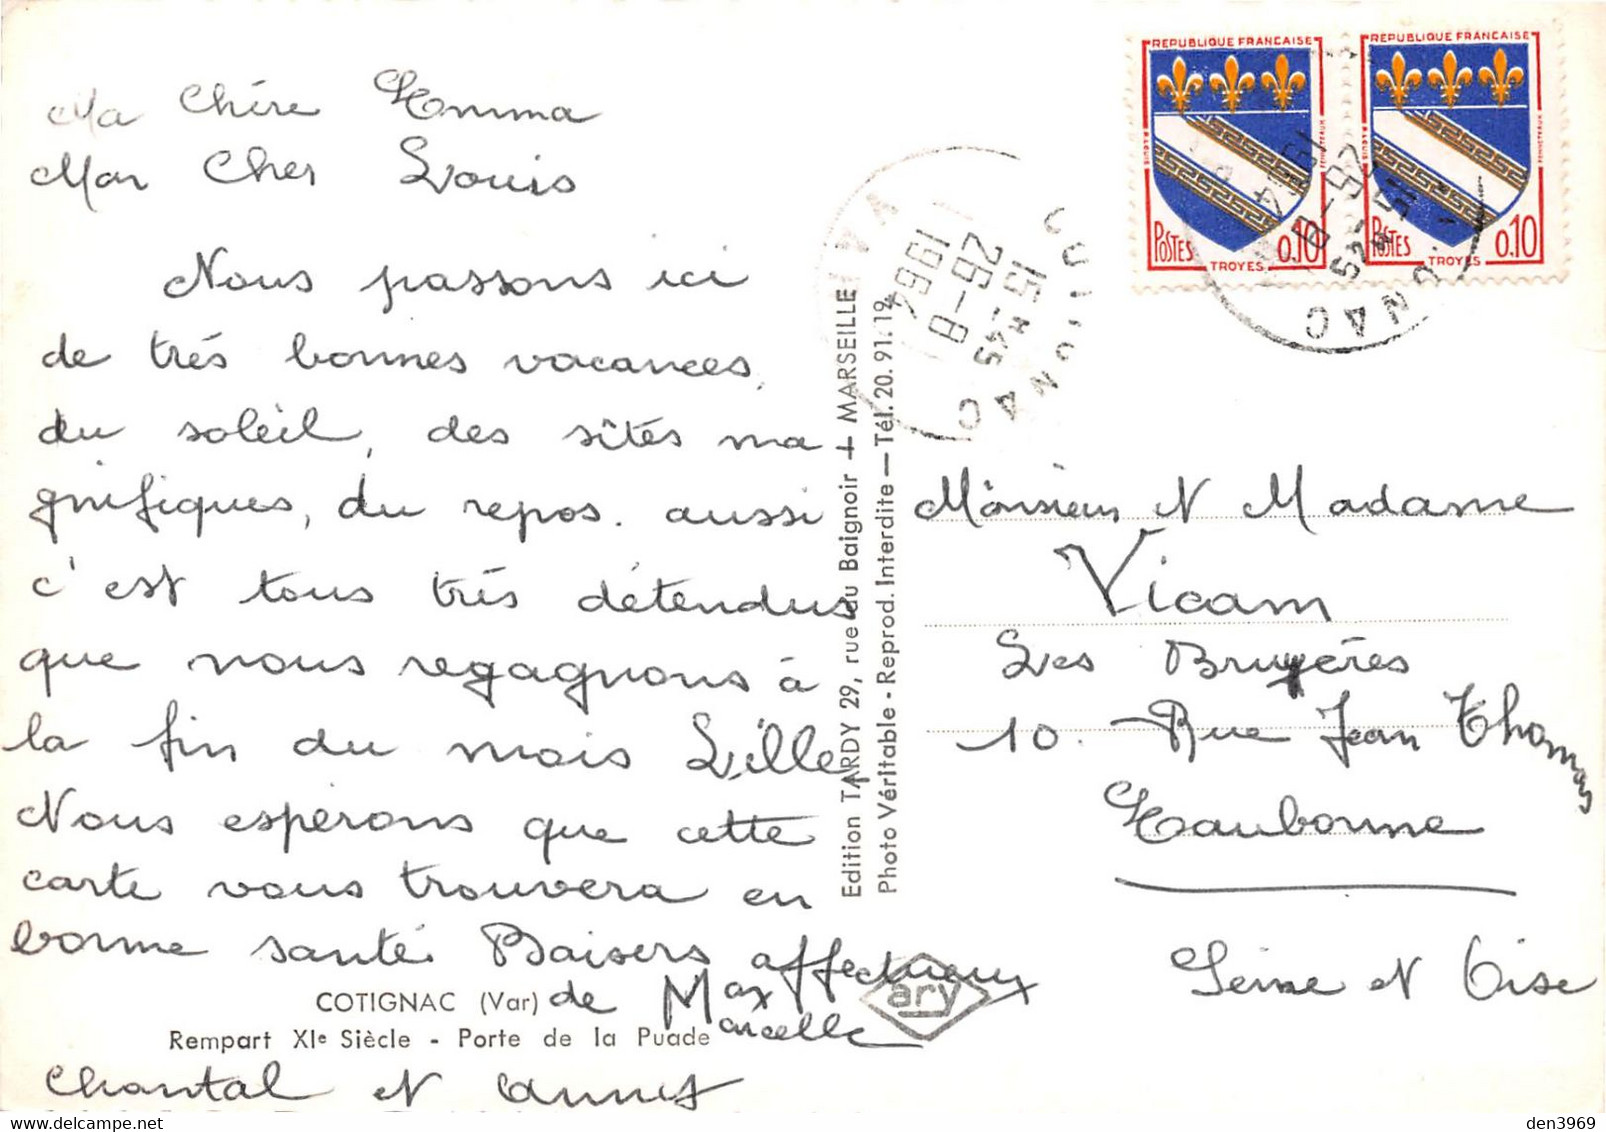 Ma Chère Emma
Mon Cher Louis
Nous passons ici
de très bonnes vacances,
du soleil, des sîtes ma
gnifiques, du repos. aussi
c'est tous très détendus
que nous regagnons à
la fin du mois Lille,
Nous espérons que cette
carte vous trouvera en
bonne santé. Baisers affectueux
de Max
Marcelle
Chantal et
COTIGNAC (Var)
Rempart XIe Siècle - Porte de la Puade
Edition TARDY 29, rue du Baignoir + MARSEILLE
Photo Véritable - Reprod. Interdite — Tél. 20. 91. 19
ary
COTIGNAC
15 H 45
26 - 8
1964
VAR
REPUBLIQUE FRANCAISE
POSTES
0,10
TROYES
REPUBLIQUE FRANCAISE
POSTES
0,10
TROYES
15 H 45
26 - 8
1964
Monsieur et Madame
Vicam
Les Bruyères
10. Rue Jean Thomas
Eaubonne
Seine et Oise
den3969
www.delcampe.net